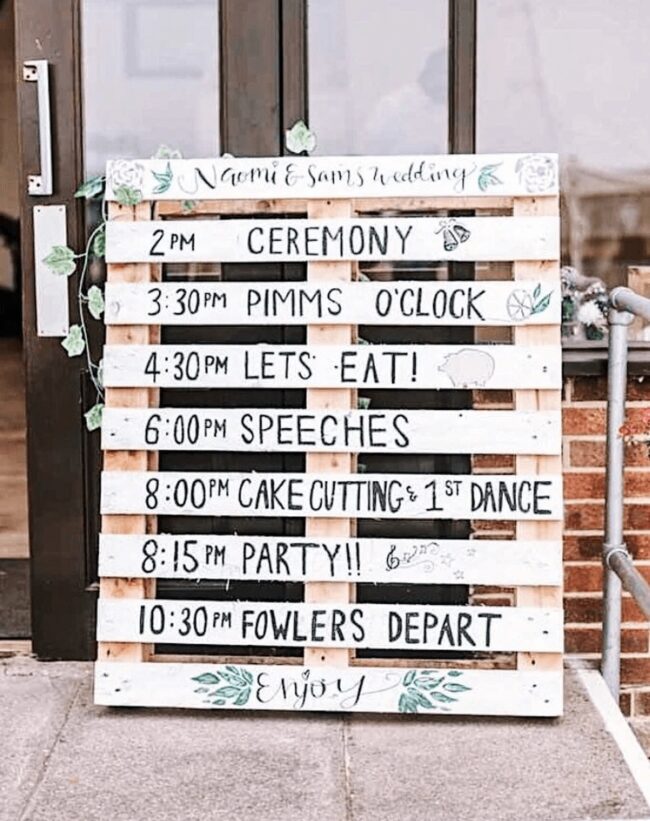 Naomi & Sams Wedding
2PM CEREMONY
3:30PM PIMMS O'CLOCK
4:30PM LETS EAT!
6:00PM SPEECHES
8:00PM CAKE CUTTING & 1ST DANCE
8:15PM PARTY!!
10:30PM FOWLERS DEPART
Enjoy